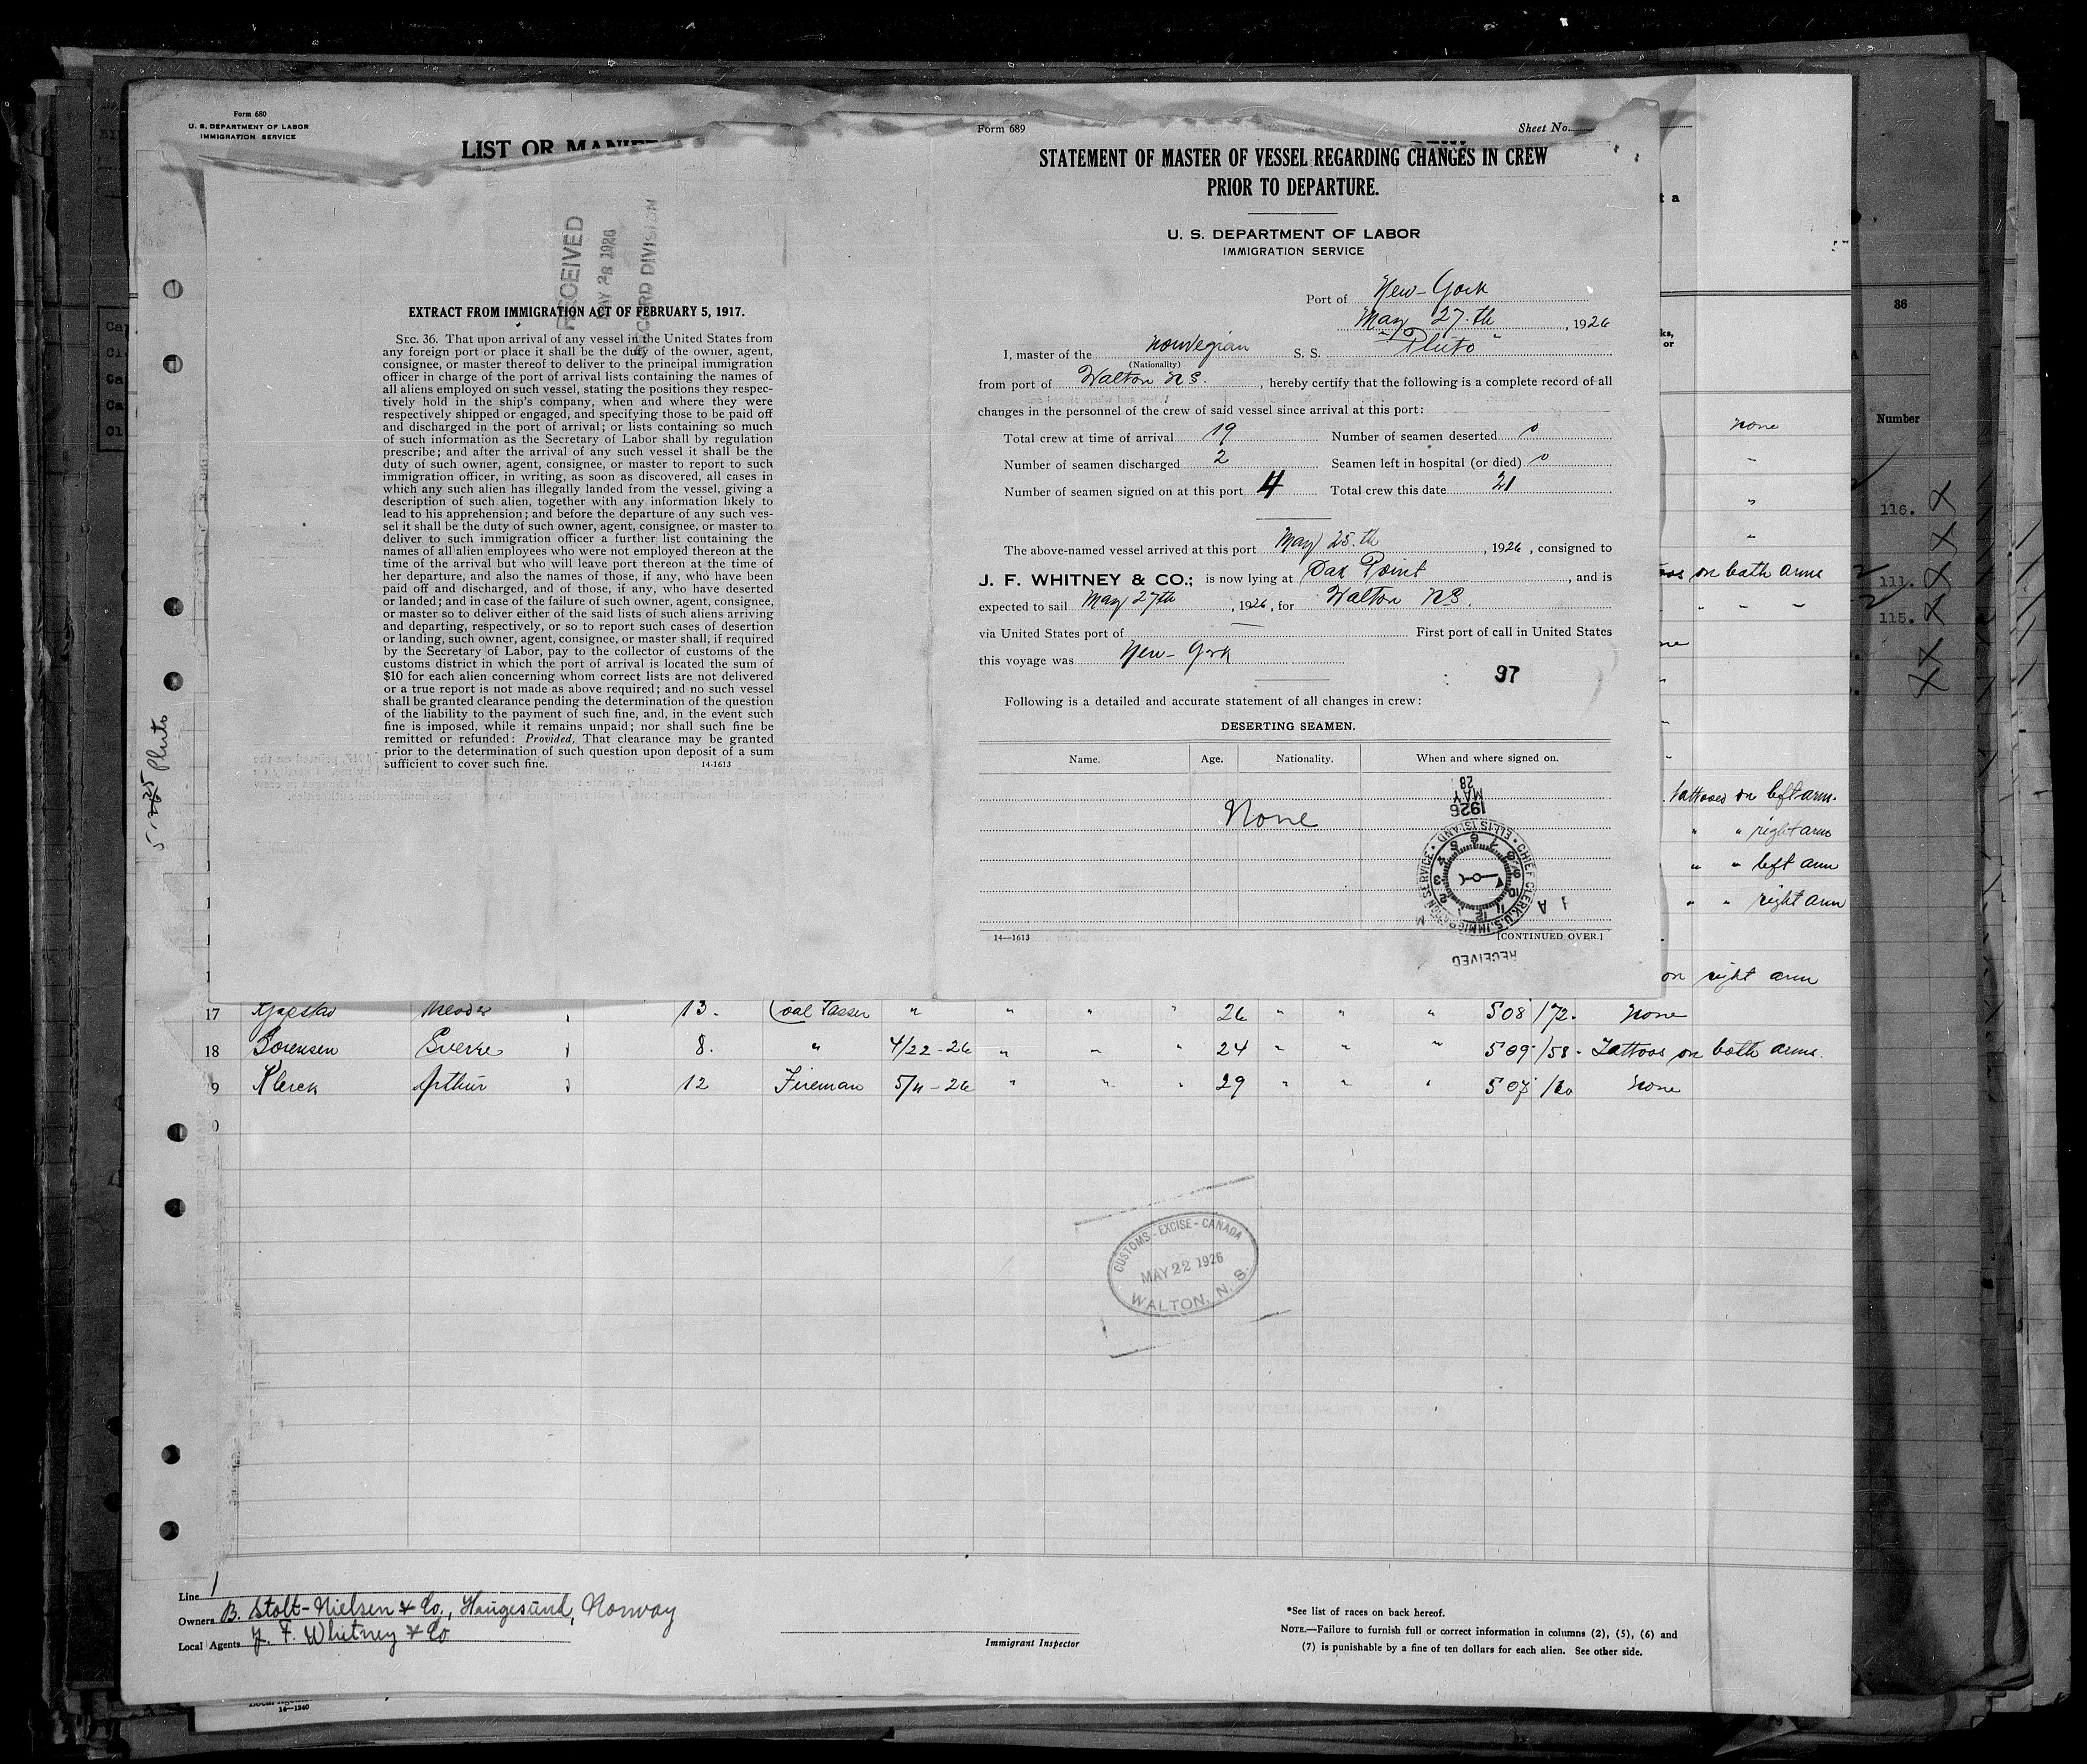 Form 680
U. S. DEPARTMENT OF LABOR
IMMIGRATION SERVICE
LIST OR
RECEIVED
MAY 28 1926
RECORD DIVISION
EXTRACT FROM IMMIGRATION ACT OF FEBRUARY 5, 1917.
SEC. 36. That upon arrival of any vessel in the United States from
any foreign port or place it shall be the duty of the owner, agent,
consignee, or master thereof to deliver to the principal immigration
officer in charge of the port of arrival lists containing the names of
all aliens employed on such vessel, stating the positions they respec-
tively hold in the ship's company, when and where they were
respectively shipped or engaged, and specifying those to be paid off
and discharged in the port of arrival; or lists containing so much
of such information as the Secretary of Labor shall by regulation
prescribe; and after the arrival of any such vessel it shall be the
duty of such owner, agent, consignee, or master to report to such
immigration officer, in writing, as soon as discovered, all cases in
which any such alien has illegally landed from the vessel, giving a
description of such alien, together with any information likely to
lead to his apprehension; and before the departure of any such ves-
sel it shall be the duty of such owner, agent, consignee, or master to
deliver to such immigration officer a further list containing the
names of all alien employees who were not employed thereon at the
time of the arrival but who will leave port thereon at the time of
her departure, and also the names of those, if any, who have been
paid off and discharged, and of those, if any, who have deserted
or landed; and in case of the failure of such owner, agent, consignee,
or master so to deliver either of the said lists of such aliens arriving
and departing, respectively, or so to report such cases of desertion
or landing, such owner, agent, consignee, or master shall, if required
by the Secretary of Labor, pay to the collector of customs of the
customs district in which the port of arrival is located the sum of
$10 for each alien concerning whom correct lists are not delivered
or a true report is not made as above required; and no such vessel
shall be granted clearance pending the determination of the question
of the liability to the payment of such fine, and, in the event such
fine is imposed, while it remains unpaid; nor shall such fine be
remitted or refunded: Provided, That clearance may be granted
prior to the determination of such question upon deposit of a sum
sufficient to cover such fine. 14-1613
Form 689 Sheet No.
STATEMENT OF MASTER OF VESSEL REGARDING CHANGES IN CREW
PRIOR TO DEPARTURE.
U. S. DEPARTMENT OF LABOR
IMMIGRATION SERVICE
Port of New-York
May 27.th, 1926
I, master of the norwegian S. S. "Pluto"
(Nationality)
from port of Walton N S., hereby certify that the following is a complete record of all
changes in the personnel of the crew of said vessel since arrival at this port:
Total crew at time of arrival 19 Number of seamen deserted 0
Number of seamen discharged 2 Seamen left in hospital (or died) 0
Number of seamen signed on at this port 4 Total crew this date 21
The above-named vessel arrived at this port May 25.th, 1926, consigned to
J. F. WHITNEY & CO.; is now lying at Oak Point, and is
expected to sail May 27th, 1926, for Walton NS.
via United States port of First port of call in United States
this voyage was New-York
97
Following is a detailed and accurate statement of all changes in crew:
DESERTING SEAMEN.
Name. Age. Nationality. When and where signed on.
None
1926 MAY 28
CHIEF CLERK, U.S. IMMIGRATION SERVICE • ELLIS ISLAND
RECEIVED
14—1613 [CONTINUED OVER.]
t a
ks,
or
none
on both arms
tattooed on left arm.
" " right arm
" " left arm
" " right arm
on right arm
36
Number
116.
111.
115.
Pluto
17 13. Coal Passer " " " " 26 " " " 508 /72. None
18 Sorensen Sverre 8. " 4/22-26 " " " 24 " " " 509 /58 - Tattoos on both arms.
9 Klerck Arthur 12 Fireman 5/4-26 " " " 29 " " " 507 /60 None
0
CUSTOMS-EXCISE-CANADA
MAY 22 1926
WALTON, N. S.
Line
Owners B. Stolt-Nielsen & Co., Haugesund, Norway
Local Agents J. F. Whitney & Co
Immigrant Inspector
*See list of races on back hereof.
NOTE.—Failure to furnish full or correct information in columns (2), (5), (6) and
(7) is punishable by a fine of ten dollars for each alien. See other side.
14—1240